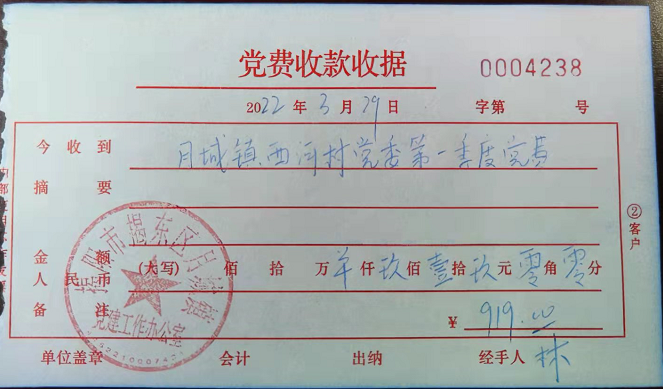 党费收款收据
0004238
2022年3月29日 字第 号
今收到 月城镇西河村党委第一季度党费
摘要
金额人民币 (大写) 佰 拾 万 仟玖佰壹拾玖元零角零分
备注 ¥ 919.00
单位盖章 会计 出纳 经手人 林
②客户
揭阳市揭东区月城镇
党建工作办公室